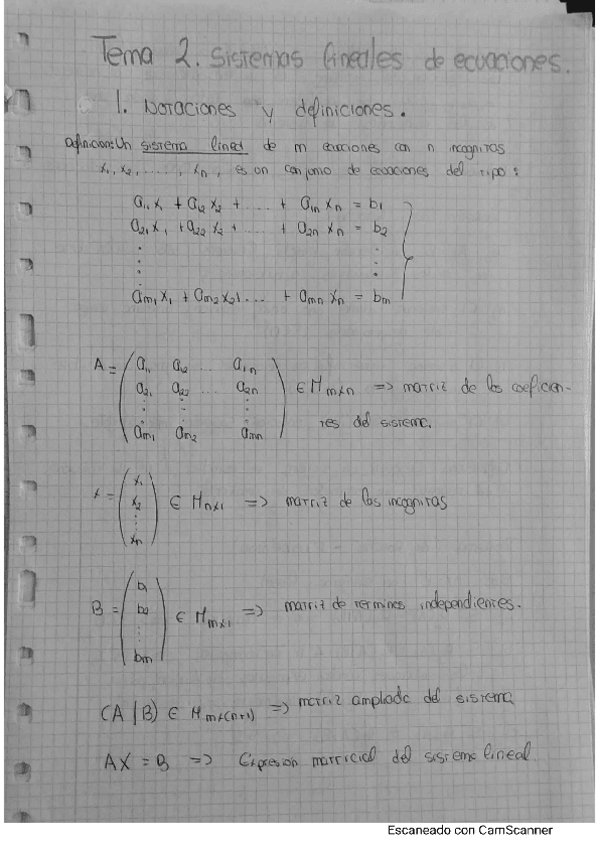 Tema 2. Sistemas lineales de ecuaciones.
1. Notaciones y definiciones.
Definición: Un sistema lineal de m ecuaciones con n incognitas
x₁, x₂, ......, xₙ, es un conjunto de ecuaciones del tipo:
a₁₁x₁ + a₁₂x₂ + .... + a₁ₙxₙ = b₁
a₂₁x₁ + a₂₂x₂ + .... + a₂ₙxₙ = b₂
⋮ ⋮
aₘ₁x₁ + aₘ₂x₂+ .... + aₘₙxₙ = bₘ
A = ( a₁₁ a₁₂ ... a₁ₙ
a₂₁ a₂₂ ... a₂ₙ
⋮ ⋮ ⋮
aₘ₁ aₘ₂ aₘₙ ) ∈ Mₘₓₙ => matriz de los coeficien-
tes del sistema.
x = ( x₁
x₂
⋮
xₙ ) ∈ Mₙₓ₁ => matriz de las incognitas
B = ( b₁
b₂
⋮
bₘ ) ∈ Mₘₓ₁ => matriz de terminos independientes.
(A | B) ∈ Mₘₓ₍ₙ₊₁₎ => matriz ampliada del sistema
AX = B => Expresion matricial del sisteme lineal.
Escaneado con CamScanner